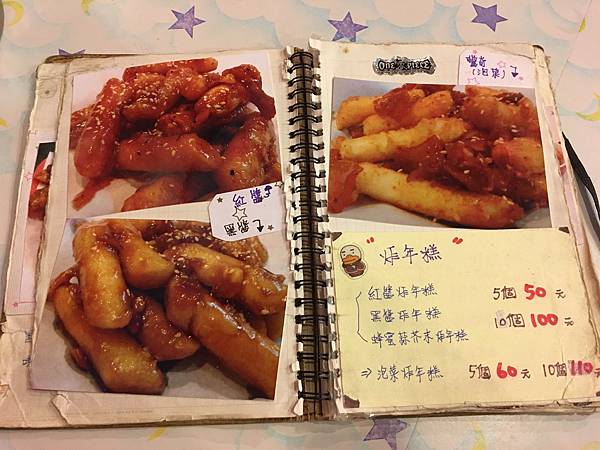 ONE PIECE
(泡菜)
"炸年糕"
紅醬炸年糕 5個 50 元
黑醬炸年糕 10個 100 元
蜂蜜蒜芥末炸年糕
⇒ 泡菜炸年糕 5個 60 元 10個 110 元